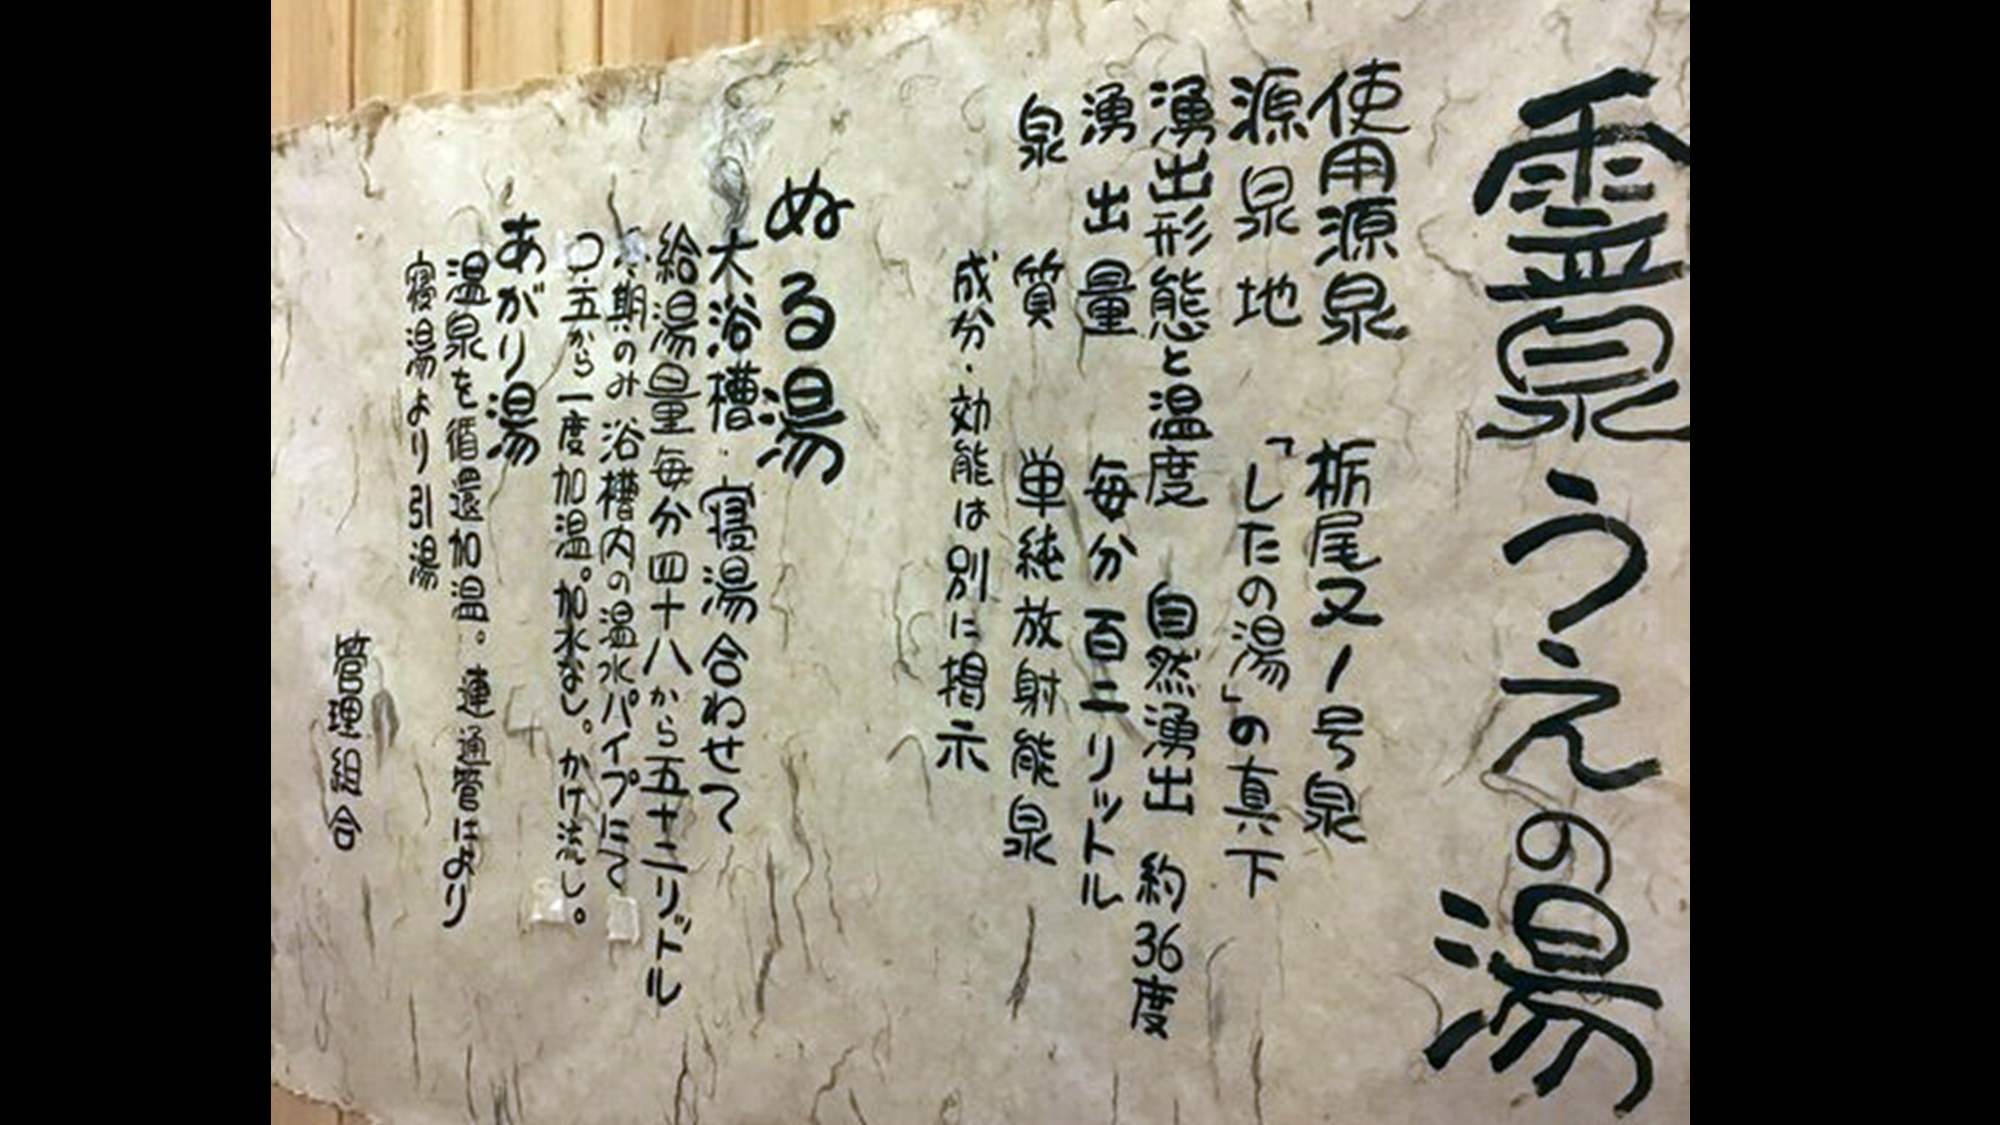 霊泉うえの湯
使用源泉 栃尾又1号泉
源泉地 「したの湯」の真下
湧出形態と温度 自然湧出 約36度
湧出量 毎分百二リットル
泉質 単純放射能泉
成分・効能は別に掲示
ぬる湯
大浴槽・寝湯合わせて
給湯量毎分四十八から五十二リットル
冬期のみ浴槽内の温水パイプにて
〇.五から一度加温。加水なし。かけ流し。
あがり湯
温泉を循還加温。連通管により
寝湯より引湯
管理組合